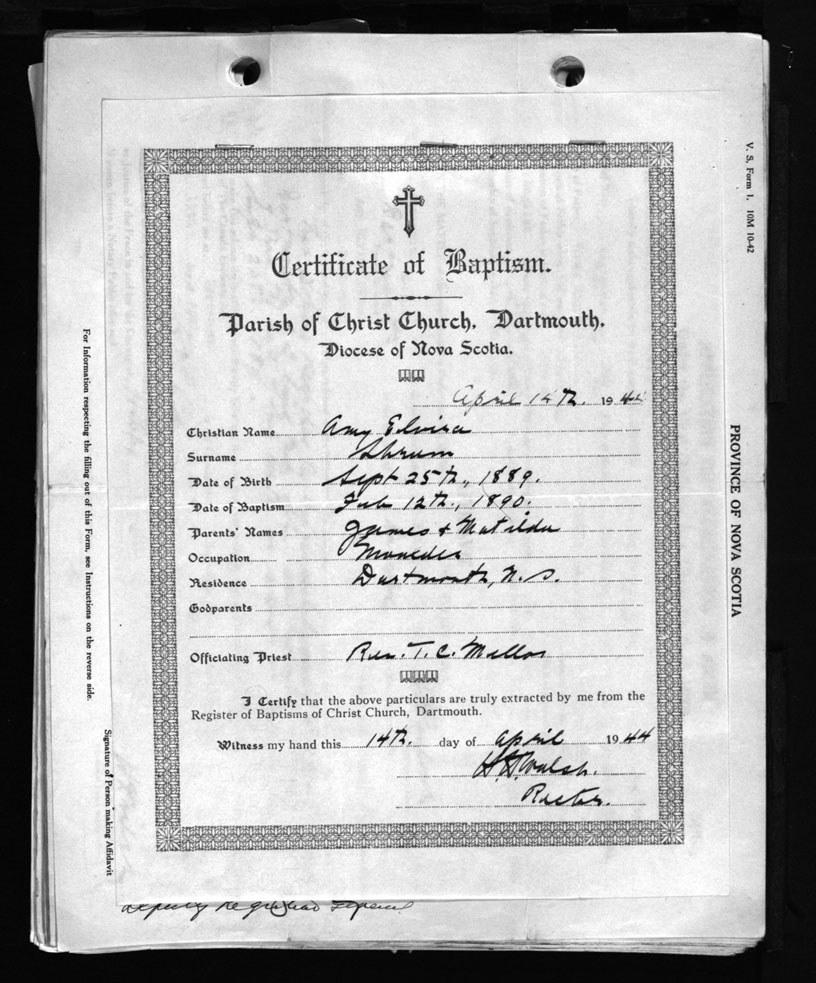 Certificate of Baptism.
Parish of Christ Church, Dartmouth.
Diocese of Nova Scotia.
April 14th. 1944
Christian Name Amy Elvira
Surname Shrum
Date of Birth Sept 25th., 1889.
Date of Baptism Feb 12th., 1890.
Parents' Names James & Matilda
Occupation
Residence Dartmouth, N. S.
Godparents
Officiating Priest Rev. T. C. Mellor
I Certify that the above particulars are truly extracted by me from the
Register of Baptisms of Christ Church, Dartmouth.
Witness my hand this 14th. day of April 1944
H. H. Walsh.
Rector.
Deputy Registrar General
V. S. Form 1. 10M 10-42
PROVINCE OF NOVA SCOTIA
For Information respecting the filling out of this Form, see Instructions on the reverse side.
Signature of Person making Affidavit